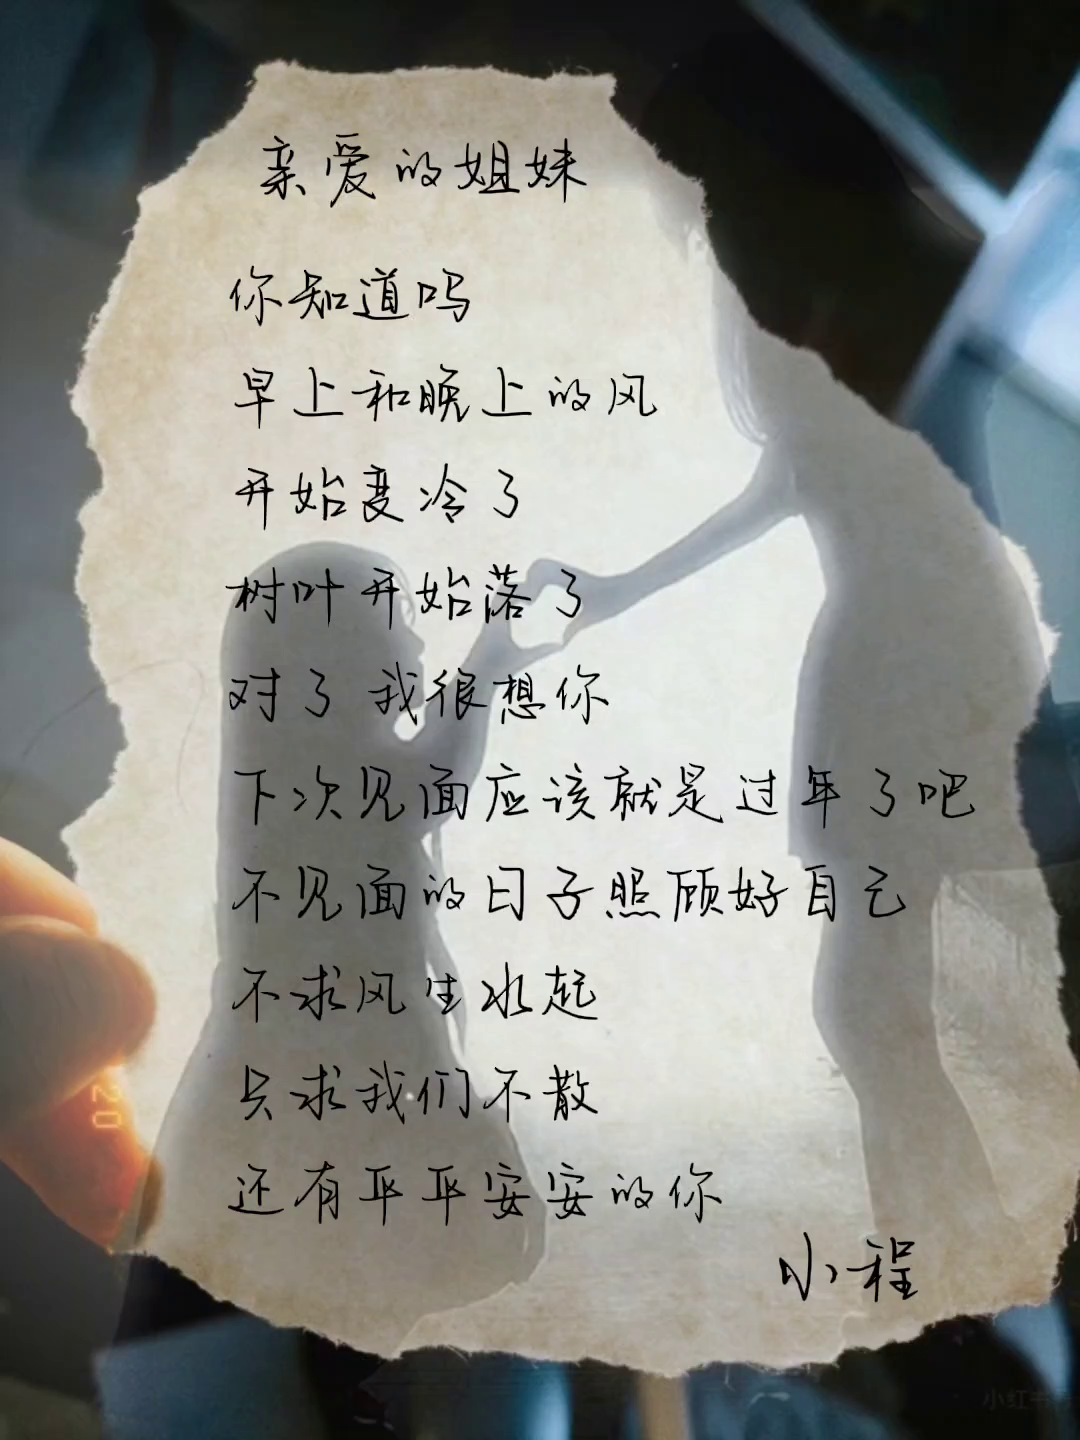 亲爱的姐妹
你知道吗
早上和晚上的风
开始变冷了
树叶开始落了
对了 我很想你
下次见面应该就是过年了吧
不见面的日子照顾好自己
不求风生水起
只求我们不散
还有平平安安的你
小程
20
小红书